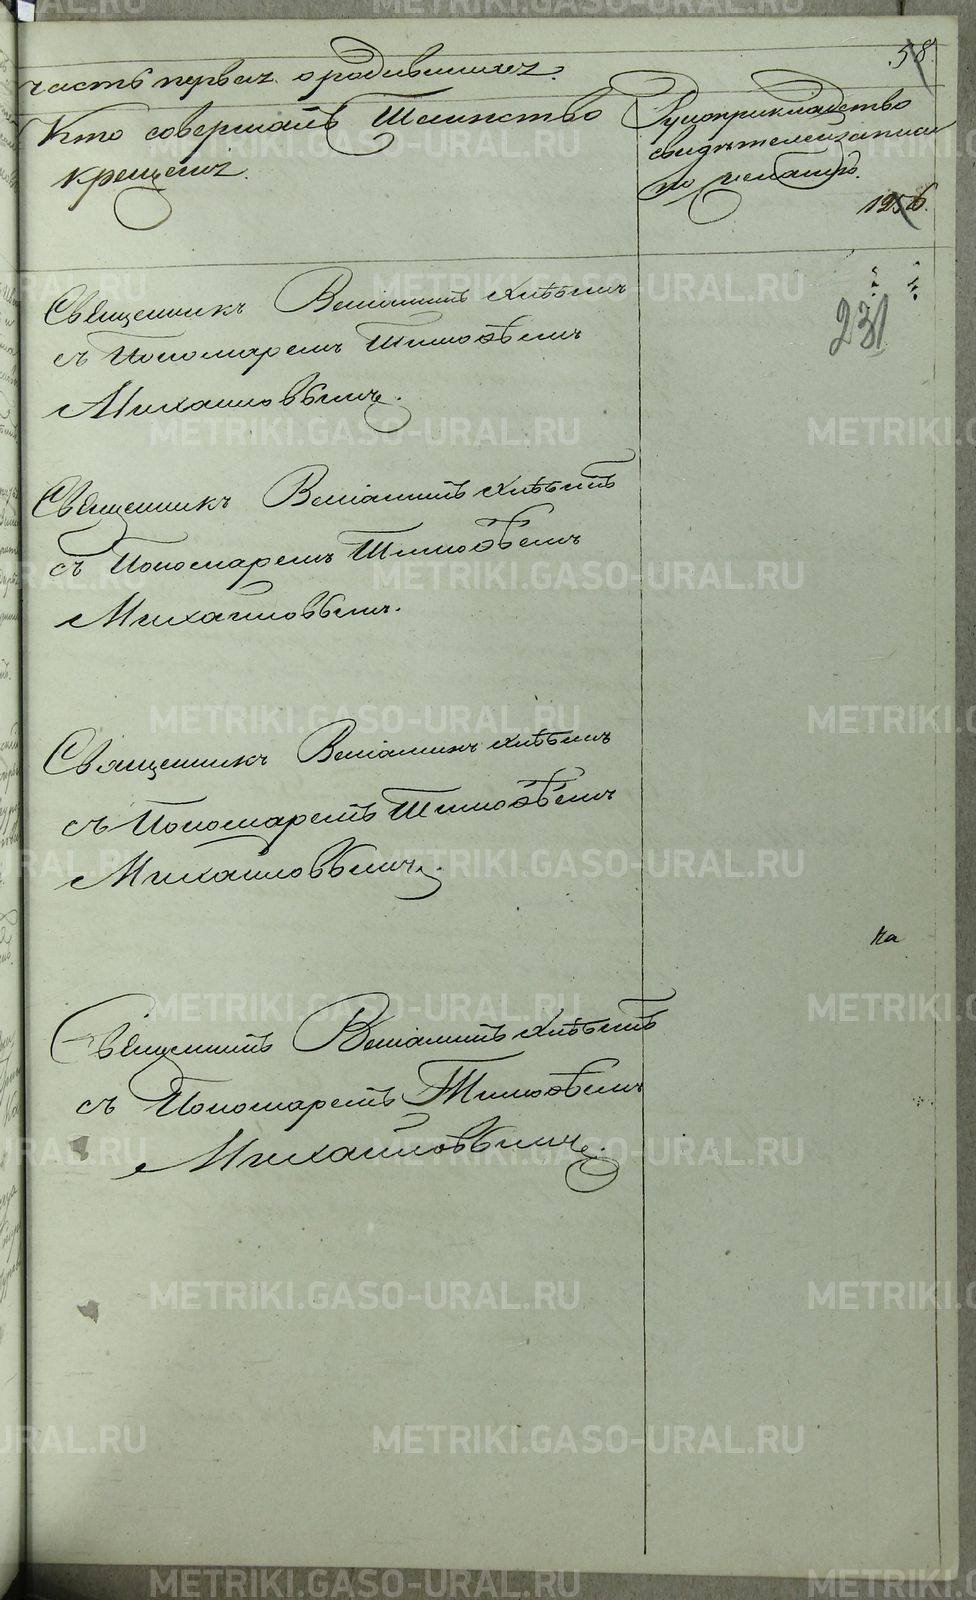 58.
часть первая о родившихся.
Кто совершалъ Таинство
крещенія.
Рукоприкладство
свидѣтелей записи
по желанію.
1256.
231
Священникъ Веніаминъ Хлѣбинъ
съ Пономаремъ Тимоѳеемъ
Михайловымъ.
Священникъ Веніаминъ Хлѣбинъ
съ Пономаремъ Тимоѳеемъ
Михайловымъ.
Священникъ Веніаминъ Хлѣбинъ
съ Пономаремъ Тимоѳеемъ
Михайловымъ.
на
Священникъ Веніаминъ Хлѣбинъ
съ Пономаремъ Тимоѳеемъ
Михайловымъ.
METRIKI.GASO-URAL.RU